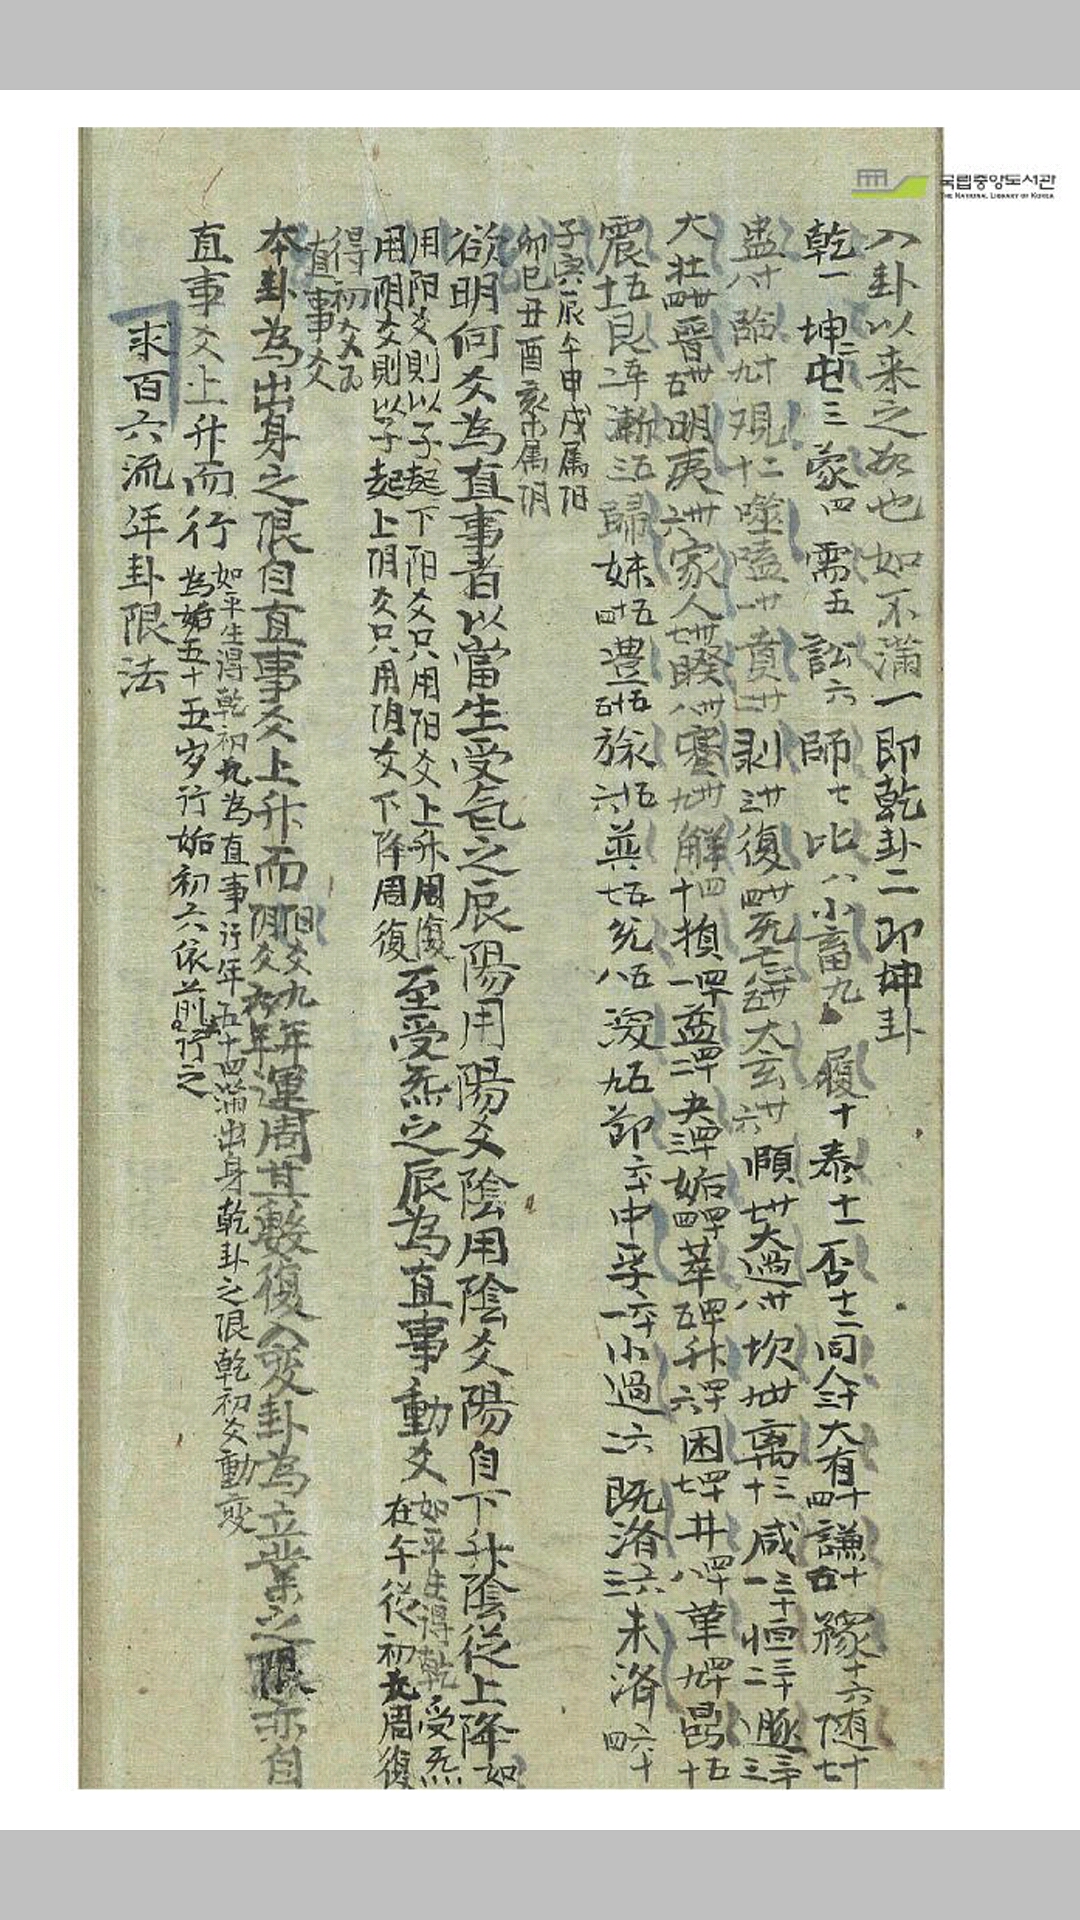 入卦以来之如也如不滿一即乾卦二即坤卦
乾一 坤二 屯三 蒙四 需五 訟六 師七 比八 小畜九 履十 泰十一 否十二 同人十三 大有十四 謙十五 豫十六 随十七
蠱十八 臨十九 观二十 噬嗑廿一 賁廿二 剥廿三 復廿四 死亡廿五 大玄廿六 頤廿七 大過廿八 坎廿九 离三十 咸三十一 恒三十二 遯三十三
大壮卅四 晋卅五 明夷卅六 家人卅七 睽卅八 蹇卅九 解四十 損四十一 益四十二 夬四十三 姤四十四 萃四十五 升四十六 困四十七 井四十八 革四十九 昌五十
震五十一 艮五十二 漸五十三 歸妹五十四 豊五十五 旅五十六 巽五十七 兑五十八 渙五十九 節六十 中孚六十一 小過六十二 既済六十三 未済六十四
子寅辰午申戌属阳
卯巳丑酉亥未属阴
欲明何爻為直事者以當生受气之辰陽用陽爻陰用陰爻陽自下升陰從上降如
用阳爻則以子起下阳爻只用阳爻上升周復
用阴爻則以子起上阴爻只用阴爻下降周復
至受炁之辰為直事動爻
如平生得乾受炁
在午從初九周復
得初爻為
直事爻
本卦為出身之限自直事爻上升而
阳爻九年
阴爻六年
運周其數復入变卦為立業之限亦自
直事爻上升而行
如平生得乾初九為直事行年五十四滿出身乾卦之限乾初爻動变
為姤五十五岁行姤初六依前行之
求百六流年卦限法
국립중앙도서관
THE NATIONAL LIBRARY OF KOREA